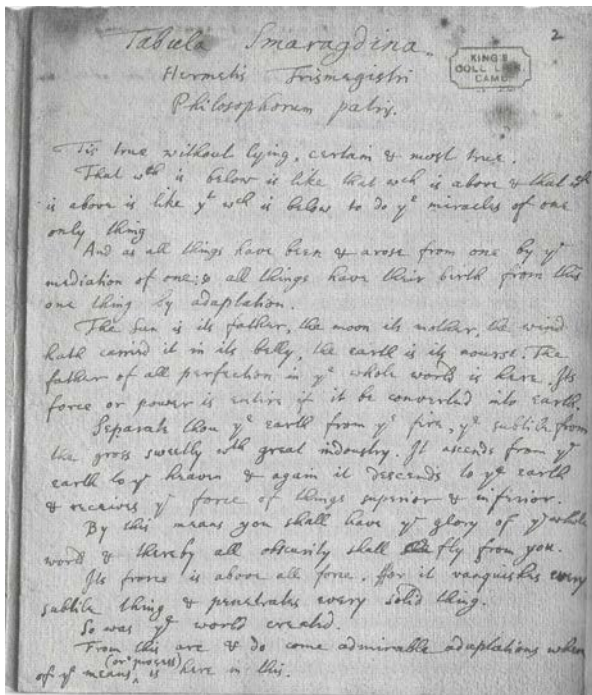 Tabula Smaragdina.
2
KING'S
COLL LIBR.
CAMB
Hermetis Trismegistri
Philosophorum patris.
Tis true without lying, certain & most true.
That wch is below is like that wch is above & that wch
is above is like yt wch is below to do ye miracles of one
only thing
And as all things have been & arose from one by ye
mediation of one: & all things have their birth from this
one thing by adaptation.
The Sun is its father, the moon its mother, the wind
hath carried it in its belly, the earth is its nourse. The
father of all perfection in ye whole world is here. Its
force or power is entire if it be converted into earth.
Separate thou ye earth from ye fire, ye subtile from
the gross sweetly wth great indoustry. It ascends from ye
earth to ye heaven & again it descends to ye earth
& receives ye force of things superior & inferior.
By this means you shall have ye glory of ye whole
world & thereby all obscurity shall fly from you.
Its force is above all force. ffor it vanquishes every
subtile thing & penetrates every solid thing.
So was ye world created.
From this are & do come admirable adaptations where
of ye means (or process) is here in this.